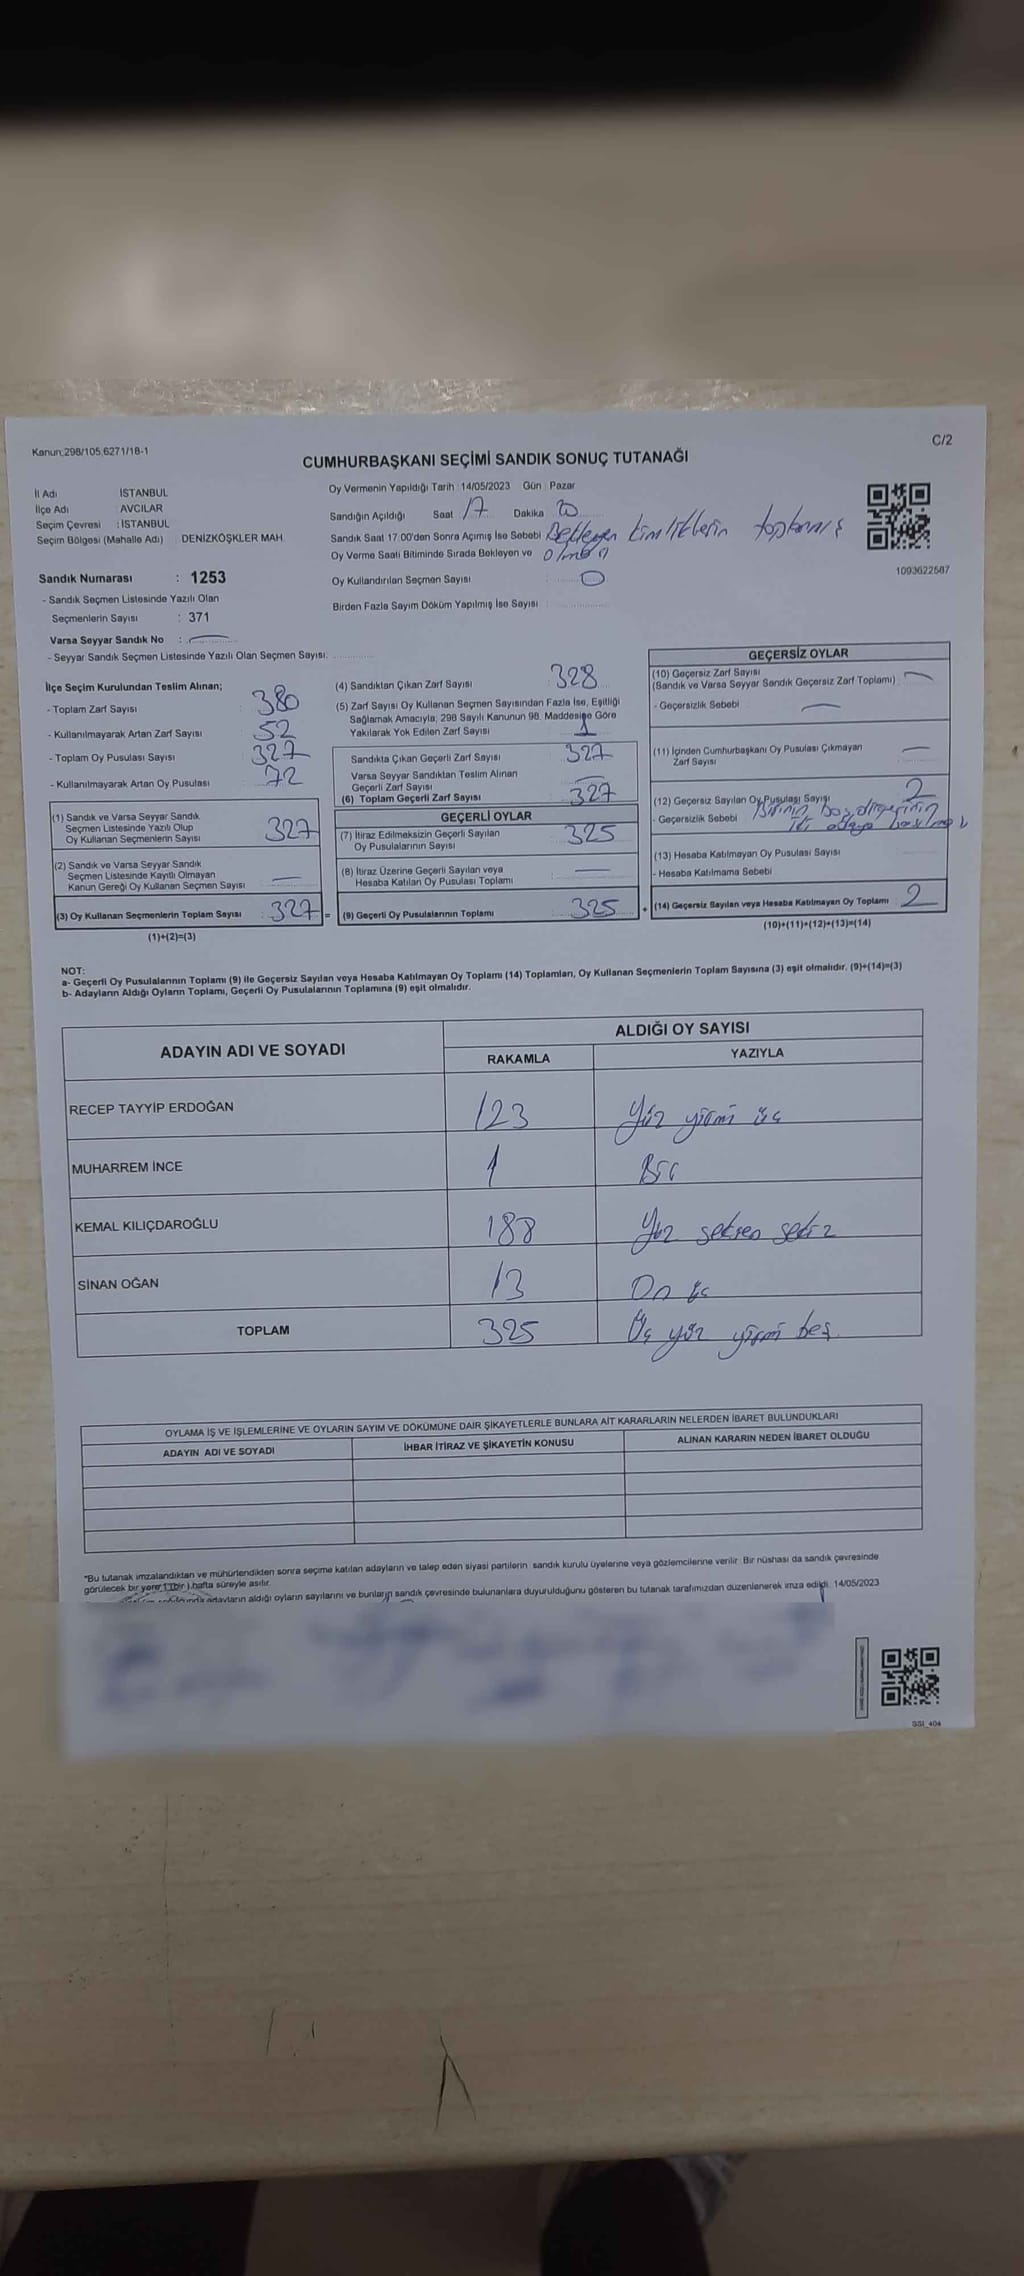 Kanun;298/105,6271/18-1
C/2
CUMHURBAŞKANI SEÇİMİ SANDIK SONUÇ TUTANAĞI
İl Adı İSTANBUL
İlçe Adı AVCILAR
Seçim Çevresi : İSTANBUL
Seçim Bölgesi (Mahalle Adı) DENİZKÖŞKLER MAH.
Oy Vermenin Yapıldığı Tarih : 14/05/2023 Gün : Pazar
Sandığın Açıldığı Saat 17 Dakika 20
Sandık Saat 17.00'den Sonra Açımış İse Sebebi Bekleyen kimliklerin toplanmış
Oy Verme Saati Bitiminde Sırada Bekleyen ve olması
Oy Kullandırılan Seçmen Sayısı 0
Birden Fazla Sayım Döküm Yapılmış İse Sayısı :
1093622587
Sandık Numarası : 1253
- Sandık Seçmen Listesinde Yazılı Olan
Seçmenlerin Sayısı : 371
Varsa Seyyar Sandık No : —
- Seyyar Sandık Seçmen Listesinde Yazılı Olan Seçmen Sayısı:
İlçe Seçim Kurulundan Teslim Alınan;
- Toplam Zarf Sayısı : 380
- Kullanılmayarak Artan Zarf Sayısı : 52
- Toplam Oy Pusulası Sayısı : 327
- Kullanılmayarak Artan Oy Pusulası : 72
(1) Sandık ve Varsa Seyyar Sandık
Seçmen Listesinde Yazılı Olup
Oy Kullanan Seçmenlerin Sayısı : 327
(2) Sandık ve Varsa Seyyar Sandık
Seçmen Listesinde Kayıtlı Olmayan
Kanun Gereği Oy Kullanan Seçmen Sayısı : —
(3) Oy Kullanan Seçmenlerin Toplam Sayısı : 327 =
(1)+(2)=(3)
(4) Sandıktan Çıkan Zarf Sayısı : 328
(5) Zarf Sayısı Oy Kullanan Seçmen Sayısından Fazla İse, Eşitliği
Sağlamak Amacıyla; 298 Sayılı Kanunun 98. Maddesine Göre
Yakılarak Yok Edilen Zarf Sayısı : 1
Sandıkta Çıkan Geçerli Zarf Sayısı : 327
Varsa Seyyar Sandıktan Teslim Alınan
Geçerli Zarf Sayısı : —
(6) Toplam Geçerli Zarf Sayısı : 327
GEÇERLİ OYLAR
(7) İtiraz Edilmeksizin Geçerli Sayılan
Oy Pusulalarının Sayısı : 325
(8) İtiraz Üzerine Geçerli Sayılan veya
Hesaba Katılan Oy Pusulası Toplamı : —
(9) Geçerli Oy Pusulalarının Toplamı : 325 +
GEÇERSİZ OYLAR
(10) Geçersiz Zarf Sayısı
(Sandık ve Varsa Seyyar Sandık Geçersiz Zarf Toplamı) : —
- Geçersizlik Sebebi : —
(11) İçinden Cumhurbaşkanı Oy Pusulası Çıkmayan
Zarf Sayısı : —
(12) Geçersiz Sayılan Oy Pusulası Sayısı : 2
- Geçersizlik Sebebi : Birinin boş diğerinin
iki adaya basılması
(13) Hesaba Katılmayan Oy Pusulası Sayısı
- Hesaba Katılmama Sebebi
(14) Geçersiz Sayılan veya Hesaba Katılmayan Oy Toplamı : 2
(10)+(11)+(12)+(13)=(14)
NOT:
a- Geçerli Oy Pusulalarının Toplamı (9) ile Geçersiz Sayılan veya Hesaba Katılmayan Oy Toplamı (14) Toplamları, Oy Kullanan Seçmenlerin Toplam Sayısına (3) eşit olmalıdır. (9)+(14)=(3)
b- Adayların Aldığı Oyların Toplamı, Geçerli Oy Pusulalarının Toplamına (9) eşit olmalıdır.
ADAYIN ADI VE SOYADI ALDIĞI OY SAYISI
RAKAMLA YAZIYLA
RECEP TAYYİP ERDOĞAN 123 Yüz yirmi üç
MUHARREM İNCE 1 Bir
KEMAL KILIÇDAROĞLU 188 Yüz seksen sekiz
SİNAN OĞAN 13 On üç
TOPLAM 325 Üç yüz yirmi beş
OYLAMA İŞ VE İŞLEMLERİNE VE OYLARIN SAYIM VE DÖKÜMÜNE DAİR ŞİKAYETLERLE BUNLARA AİT KARARLARIN NELERDEN İBARET BULUNDUKLARI
ADAYIN ADI VE SOYADI İHBAR İTİRAZ VE ŞİKAYETİN KONUSU ALINAN KARARIN NEDEN İBARET OLDUĞU
"Bu tutanak imzalandıktan ve mühürlendikten sonra seçime katılan adayların ve talep eden siyasi partilerin sandık kurulu üyelerine veya gözlemcilerine verilir. Bir nüshası da sandık çevresinde
görülecek bir yere 1 (bir) hafta süreyle asılır.
adayların aldığı oyların sayılarını ve bunların sandık çevresinde bulunanlara duyurulduğunu gösteren bu tutanak tarafımızdan düzenlenerek imza edildi. 14/05/2023
SSI_404